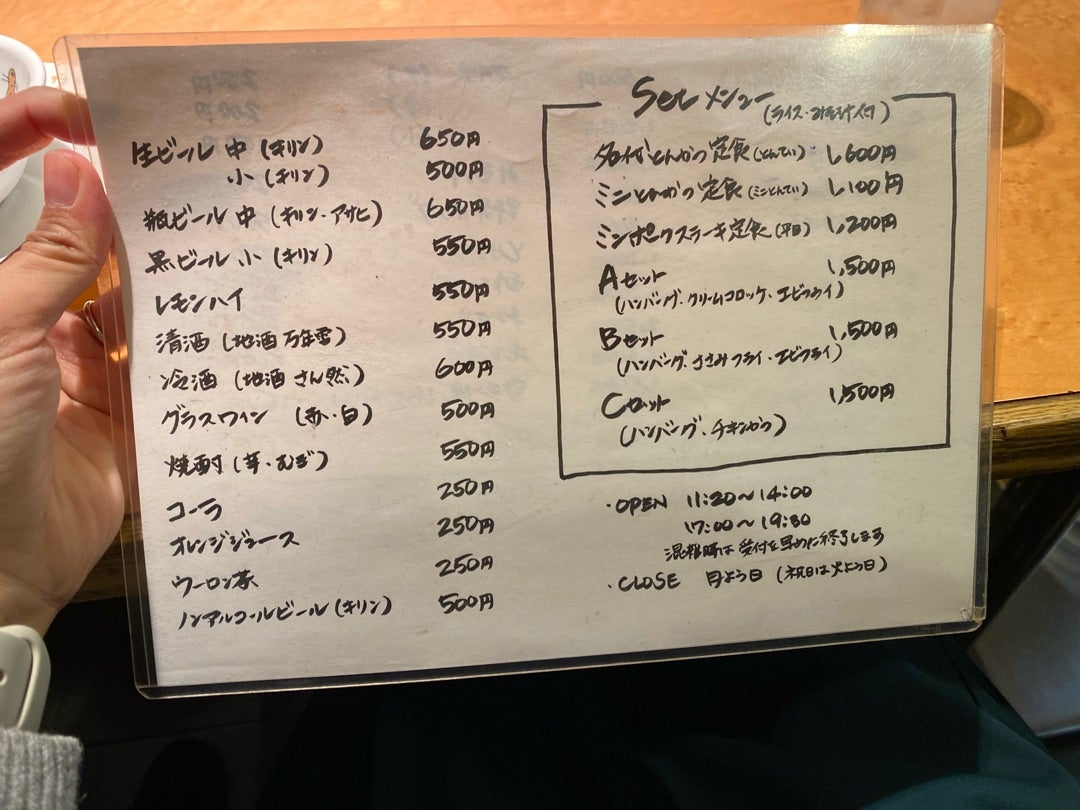 生ビール 中 (キリン) 650円
小 (キリン) 500円
瓶ビール 中 (キリン・アサヒ) 650円
黒ビール 小 (キリン) 550円
レモンハイ 550円
清酒 (地酒 万年雪) 550円
冷酒 (地酒 さん然) 600円
グラスワイン (赤・白) 500円
焼酎 (芋・むぎ) 550円
コーラ 250円
オレンジジュース 250円
ウーロン茶 250円
ノンアルコールビール (キリン) 500円
Setメニュー
(ライス・みそ汁付)
名代とんかつ定食 (とんてい) 1,600円
ミニとんかつ定食 (ミニとんてい) 1,100円
ミニポークステーキ定食 (平日) 1,200円
Aセット 1,500円
(ハンバーグ、クリームコロッケ・エビフライ)
Bセット 1,500円
(ハンバーグ、ささみフライ・エビフライ)
Cセット 1,500円
(ハンバーグ、チキンかつ)
・OPEN 11:20〜14:00
17:00〜19:30
混雑時は受付を早めに終了します
・CLOSE 月よう日 (祝日は火よう日)